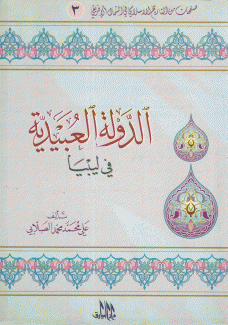 صفحات من التاريخ الإسلامي في الشمال الإفريقي
٣
الدولة العبيدية
في ليبيا
تأليف
علي محمد محمد الصلابي